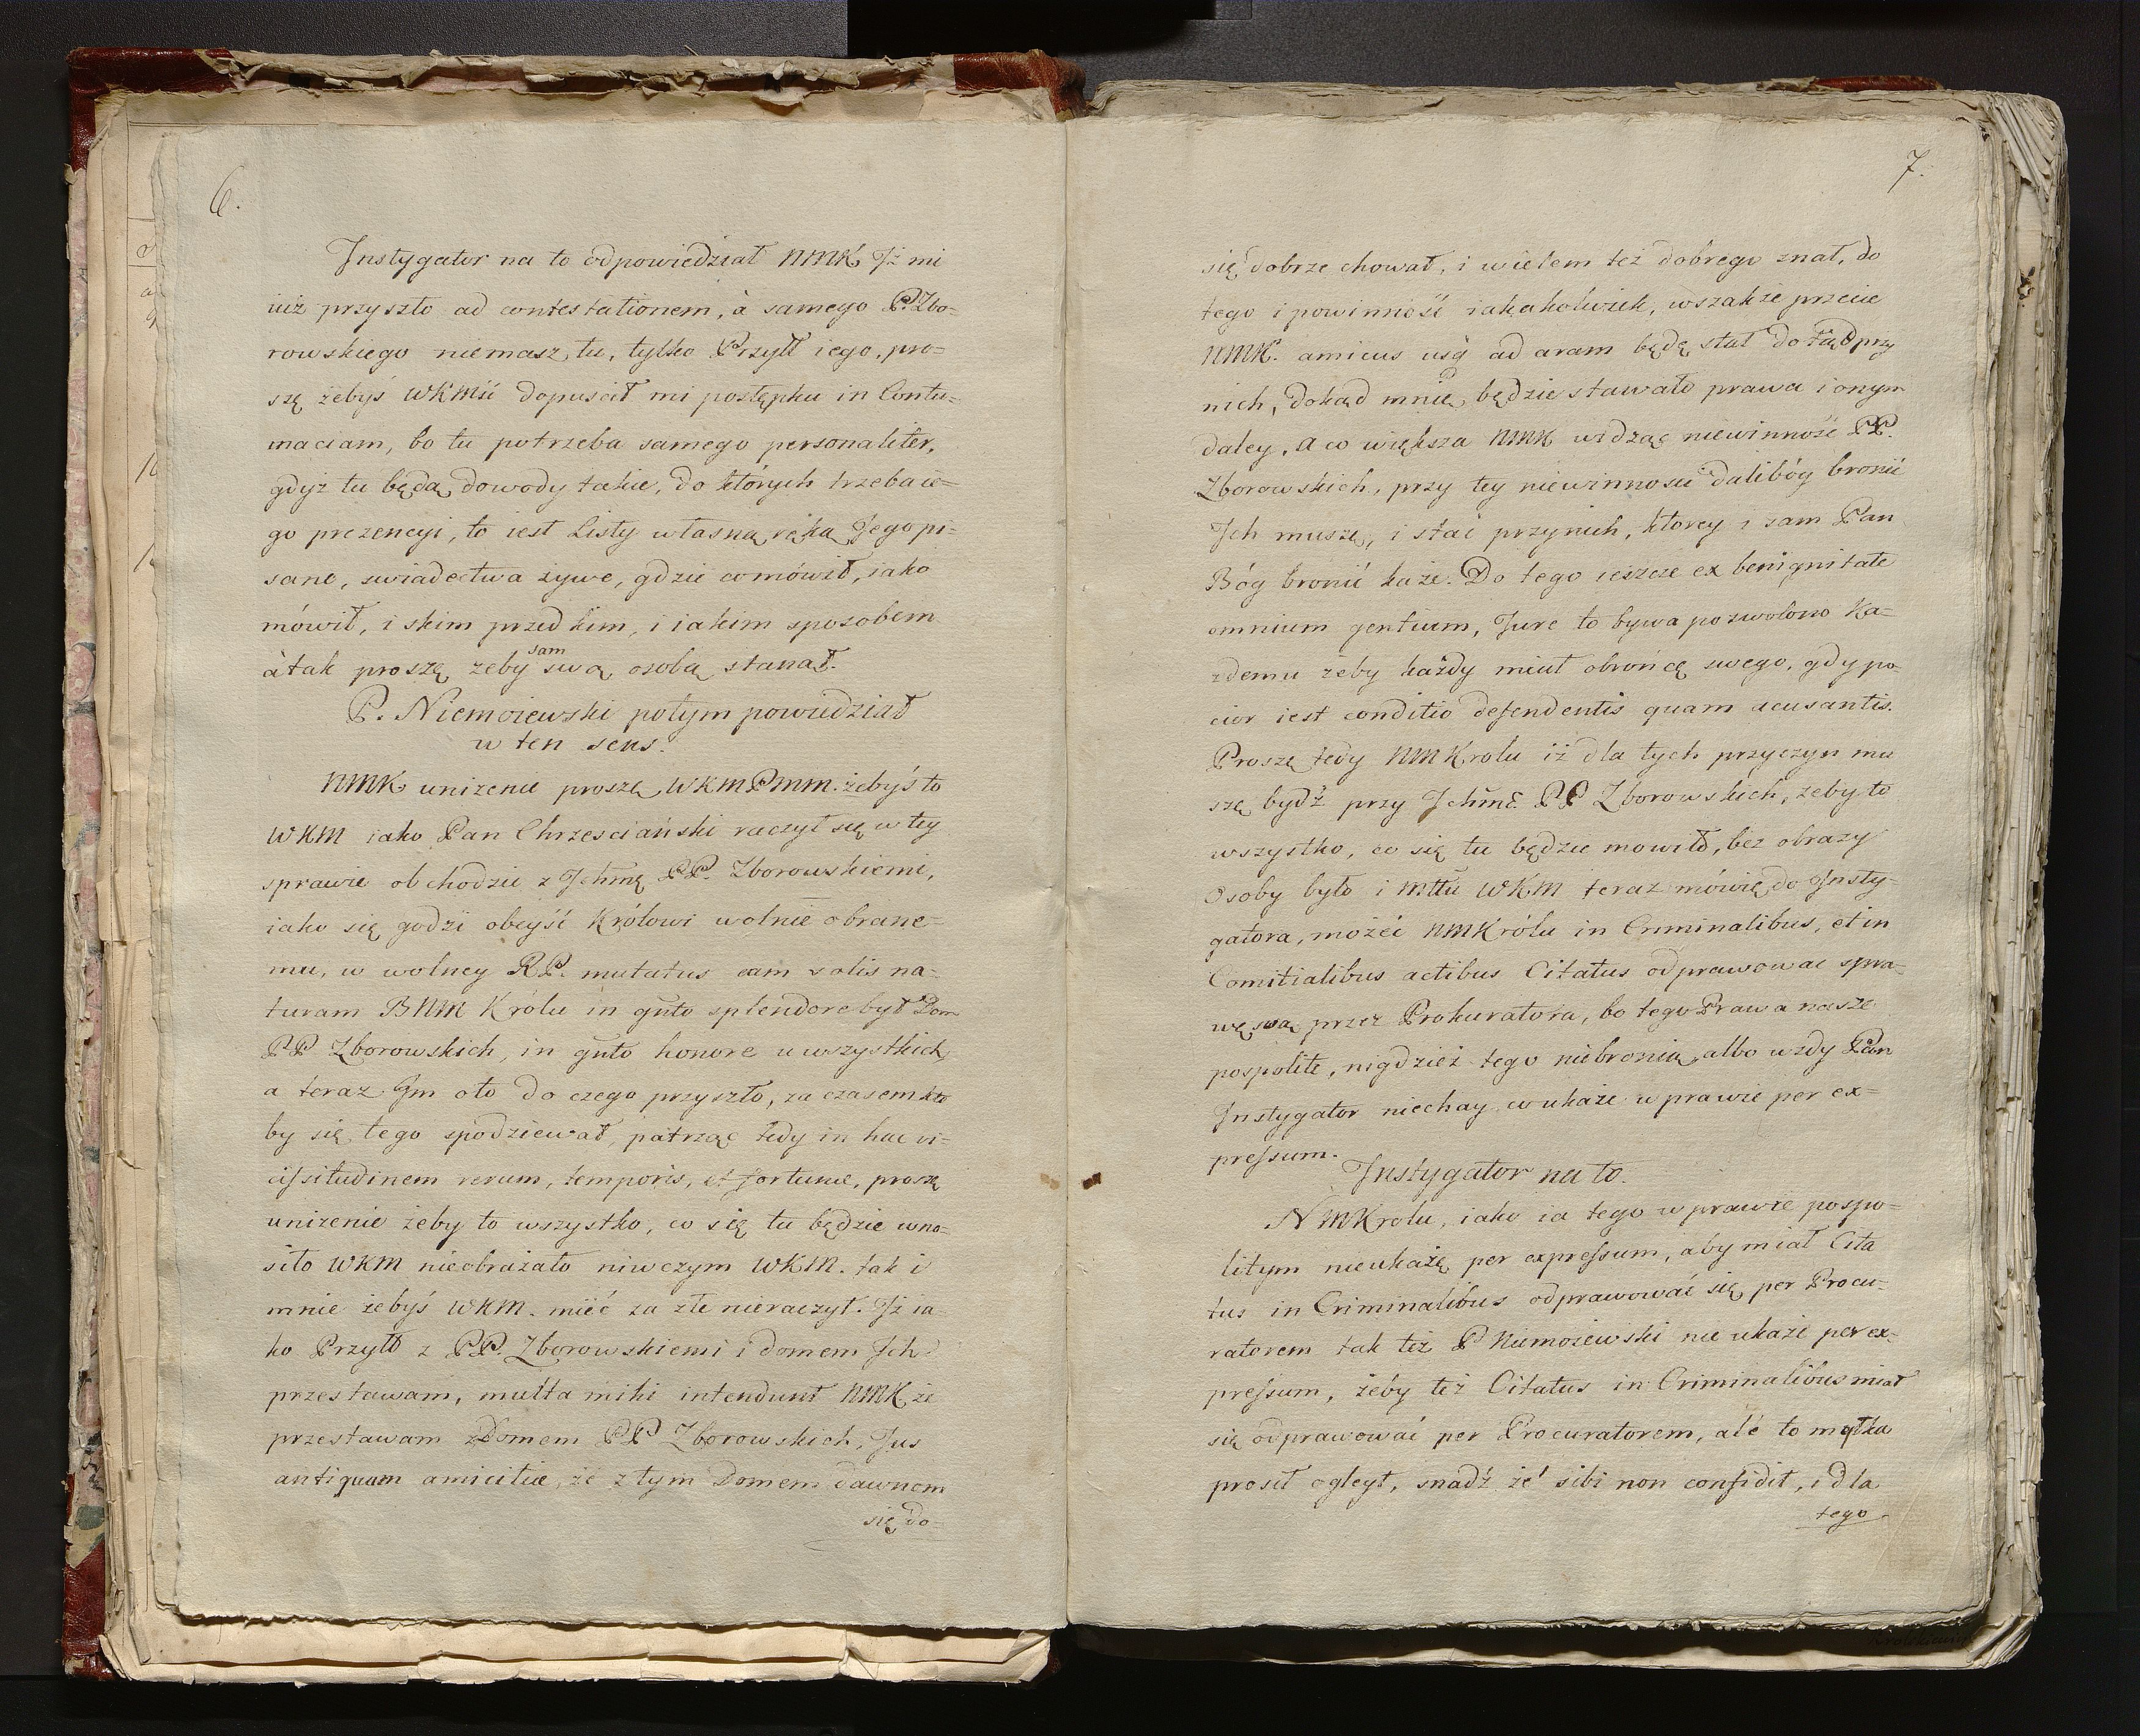 6.
Instygator na to odpowiedział NMK, Jż mi
iuż przyszło ad contestationem, à samego P. Zbo-
rowskiego niemasz tu, tylko Przyłł iego, pro-
szę żebyś WKMść dopuscił mi postępku in Contu-
maciam, bo tu potrzeba samego personaliter,
gdyż tu będą dowody takie, do których trzeba ie-
go prezencyi, to iest Listy własną ręką Jego pi-
sane, swiadectwa żywe, gdzie co mówił, iako
mówił, i skim przed kim, i iakim sposobem
àtak proszę żeby sam swą osobą stanął.
P. Niemoiewski potym powiedział
w ten sens.
NMK uniżenie proszę WKMPmm. żebyś to
WKM iako Pan Chrzesciański raczył się w tey
sprawie obchodzić z Jchmę PP. Zborowskiemi,
iako się godzi obeyść Królowi wolnie obrane-
mu, w wolney RP. mutatus eam solis na-
turam BNM Królu in gnto splendore był Dom
PP Zborowskich, in gnto honore u wszystkich,
a teraz Gm oto do czego przyszło, za czasem kto
by się tego spodziewał, patrząc tedy in hac vi-
cissitudinem rerum, temporis, et fortunæ, proszę
uniżenie żeby to wszystko, co się tu będzie wno-
siło WKM nieobrażało niwczym WKM. tak i
mnie żebyś WKM. mieć za złe nieraczył. Jż ia-
ko Przyłł z PP. Zborowskiemi i domem Jch
przestawam, multa mihi intendunt NMK, że
przestawam z Domem PP Zborowskich, Jus
antiquum amicitiæ, że z tym Domem dawnom
się do-
7.
się dobrze chował, i wielem też dobrego znał, do
tego i powinność iakakolwiek, wszakże przecie
NMK. amicus usq ad aram będę stał dotąd przy
nich, dokąd mnie będzie stawało prawa i onym
daley, a co większa NMK widząc niewinność PP.
Zborowskich, przy tey niewinnosci dalibóg bronić
Jch muszę, i stać przynich, ktorey i sam Pan
Bóg bronić każe. Do tego ieszcze ex benignitate
omnium gentium, Jure to bywa pozwolono Ka-
zdemu żeby każdy miał obrońcę swego, gdy po-
cior iest conditio defendentis quam acusantis.
Proszę tedy NMKrolu iż dla tych przyczyn mu
szę bydź przy Jchmć. PP Zborowskich, żeby to
wszystko, co się tu będzie mowiło, bez obrazy
Osoby było i mttu WKM teraz mówię do Insty-
gatora, możeć NMKrólu in Criminalibus, et in
Comitialibus actibus Citatus odprawowac spra-
wę swą przez Prokuratora, bo tego Prawa nasze
pospolite, nigdzież tego niebronią, albo wzdy Pan
Instygator niechay co ukaże w prawie per ex-
pressum.
Instygator na to.
NMKrolu, iako ia tego w prawie pospo-
litym nieukażę per expressum, aby miał Cita
tus in Criminalibus odprawować się per Procu-
ratorem tak też P Niemoiewski nie ukaże per ex-
pressum, żeby też Citatus in Criminalibus miał
się odprawować per Procuratorem, ale to matka
prosił snadź że sibi non confidit, i dla
tego